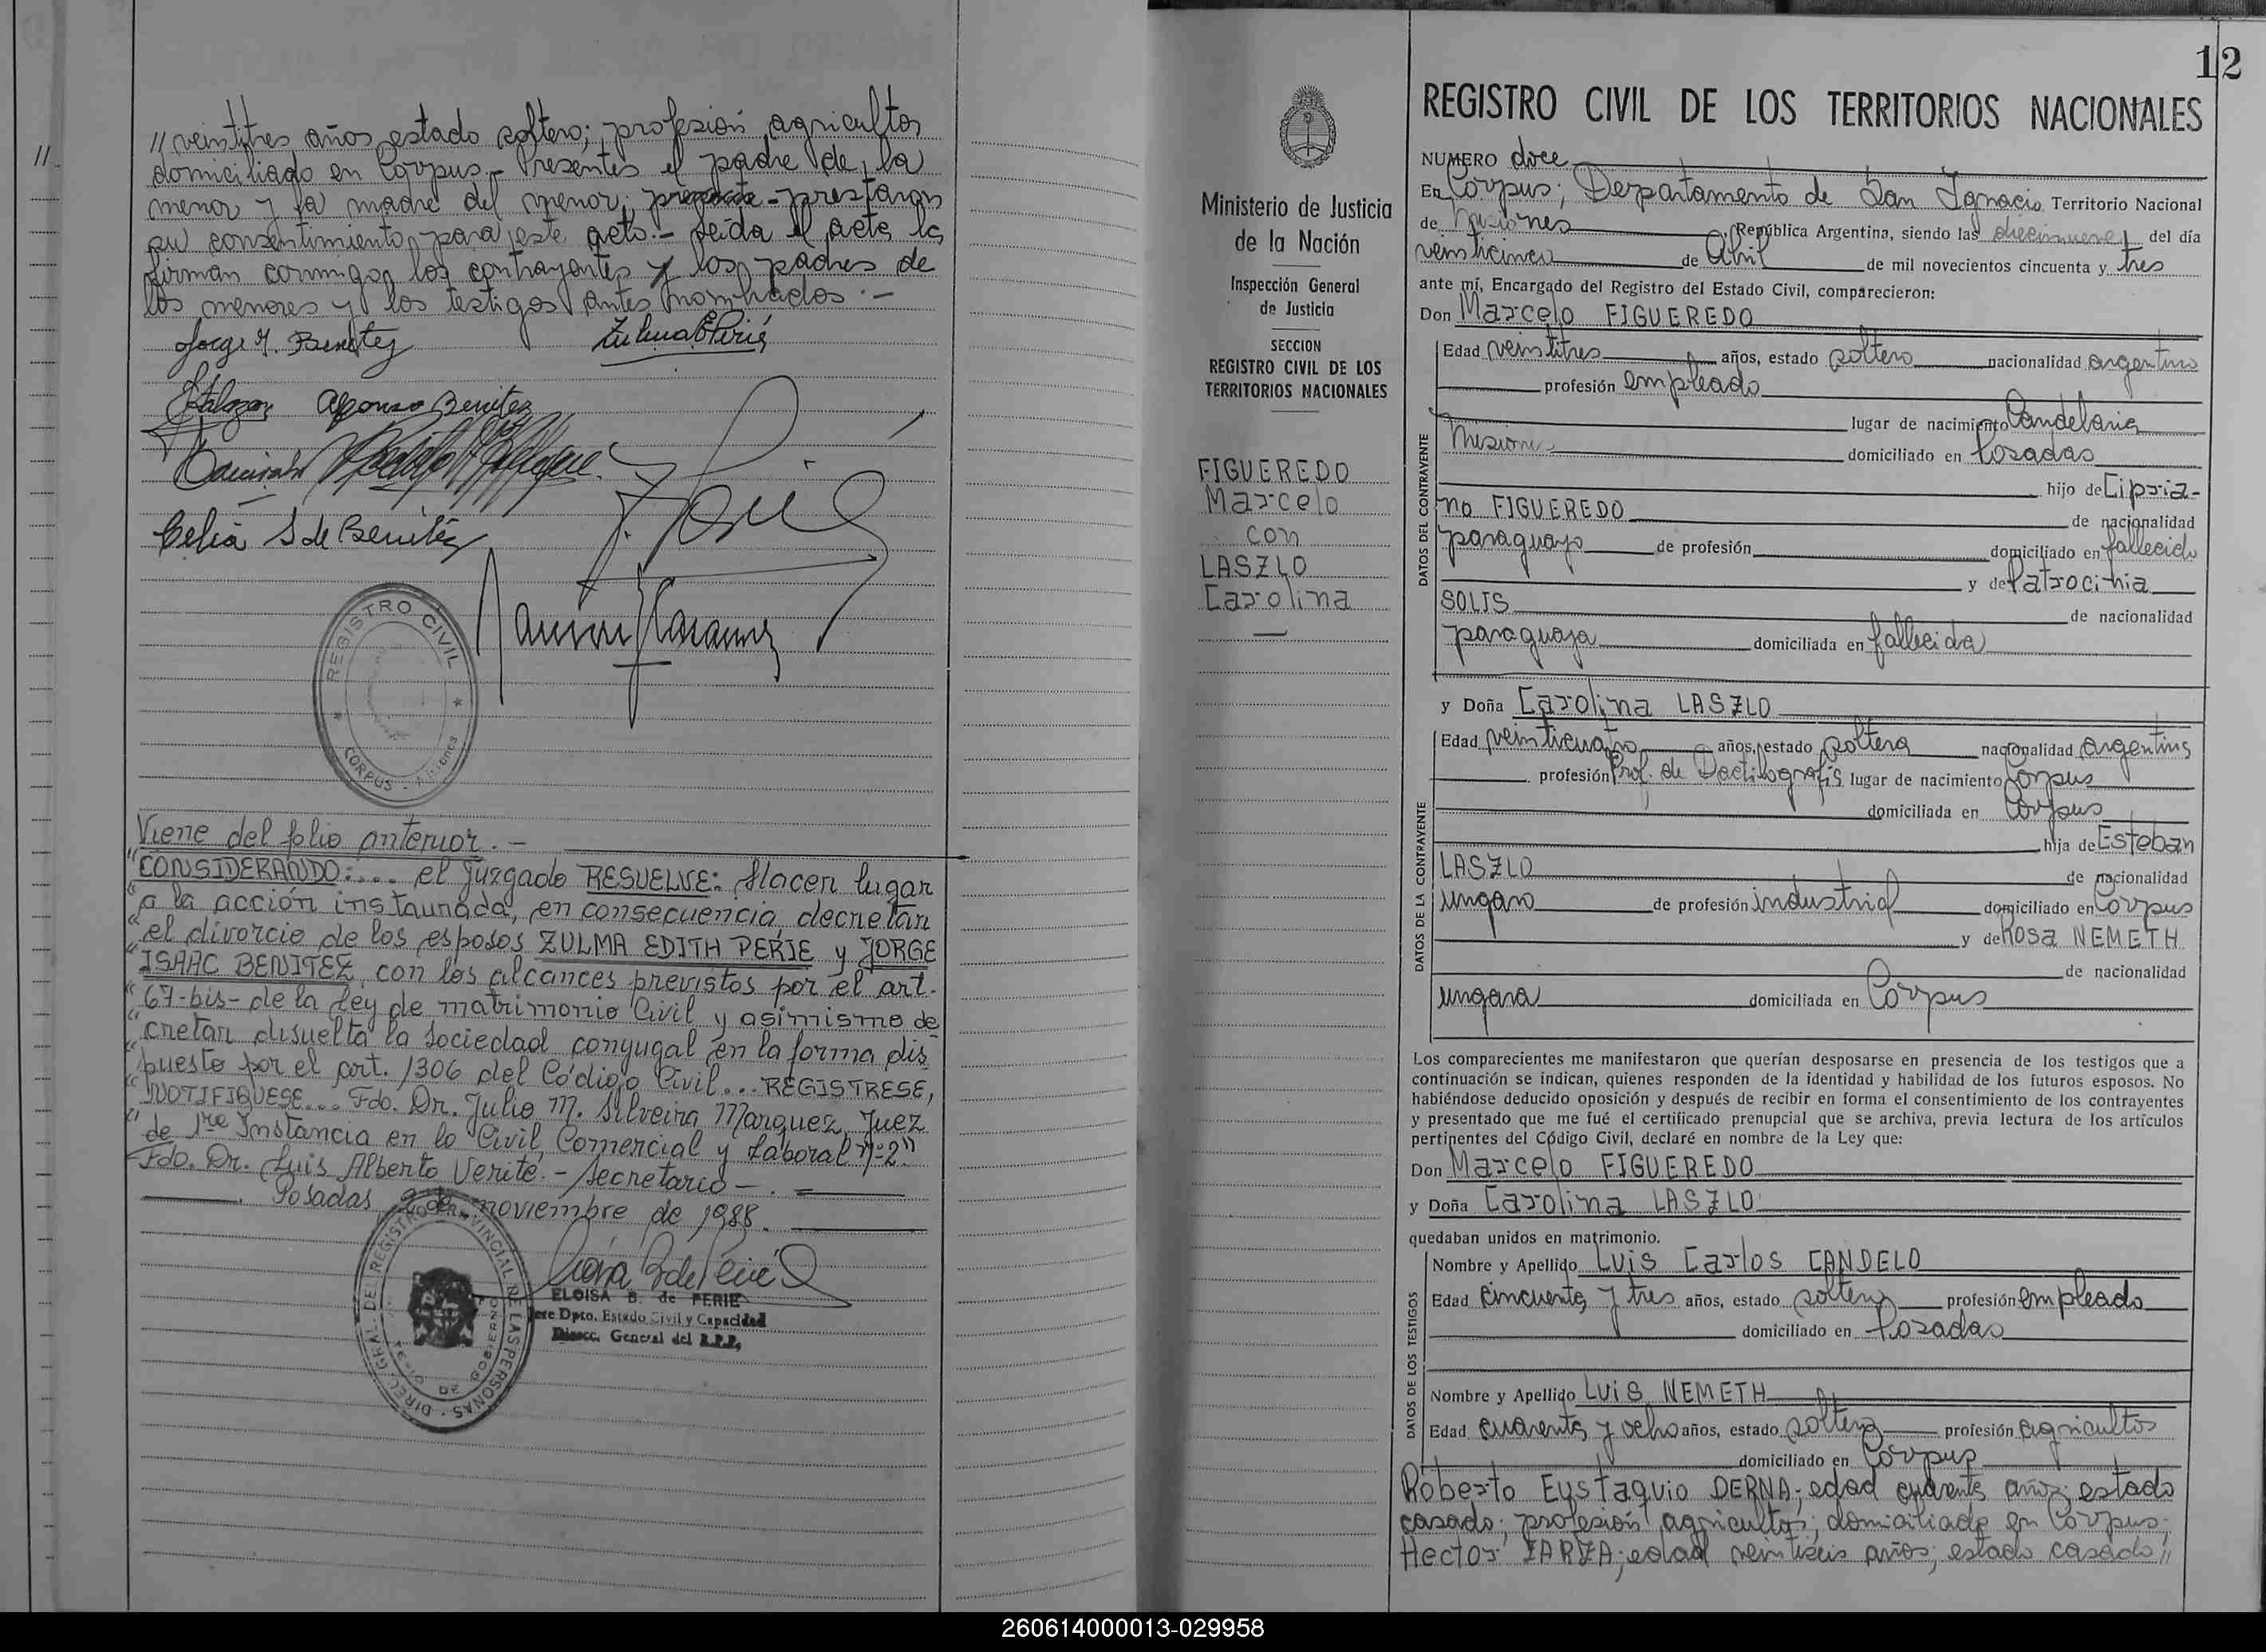 // veintitres años, estado soltero; profesión agricultor
//
domiciliado en Corpus.- Presentes el padre de la
menor y la madre del menor, prestaron
su consentimiento para este acto.- Leida el acta la
firman conmigo, los contrayentes y los padres de
los menores y los testigos antes nombrados.-
Jorge I. Benitez Zulma E Perié
Alfonso Benitez
Celia S de Benitez
REGISTRO CIVIL
CORPUS - Misiones
Viene del folio anterior.-
"CONSIDERANDO:.... el Juzgado RESUELVE: Hacer lugar
"a la acción instaurada, en consecuencia, decretar
"el divorcio de los esposos ZULMA EDITH PERIE y JORGE
"ISAAC BENITEZ, con los alcances previstos por el art.
"67-bis- de la Ley de matrimonio Civil y asimismo de
"cretar disuelta la sociedad conyugal en la forma dis
"puesto por el art. 1306 del Código Civil... REGISTRESE,
"NOTIFIQUESE... Fdo. Dr. Julio M. Silveira Marquez, Juez
"de 1ra Instancia en lo Civil, Comercial y Laboral Nº 2"
Fdo. Dr. Luis Alberto Verite.- Secretario-.
Posadas, 2 de noviembre de 1988.
DIREC. GRAL. DE REGISTRO PROVINCIAL DE LAS PERSONAS
DE GOBIERNO
ELOISA B. de PERIE
Jefe Dpto. Estado Civil y Capacidad
Direcc. General del R.P.P.
Ministerio de Justicia
de la Nación
Inspección General
de Justicia
SECCION
REGISTRO CIVIL DE LOS
TERRITORIOS NACIONALES
FIGUEREDO
Marcelo
con
LASZLO
Carolina
12
REGISTRO CIVIL DE LOS TERRITORIOS NACIONALES
NUMERO doce
En Corpus; Departamento de San Ignacio Territorio Nacional
de Misiones República Argentina, siendo las diecinueve del día
veinticinco de Abril de mil novecientos cincuenta y tres
ante mí, Encargado del Registro del Estado Civil, comparecieron:
Don Marcelo FIGUEREDO
DATOS DEL CONTRAYENTE
Edad veintitres años, estado soltero nacionalidad argentino
profesión empleado
lugar de nacimiento Candelaria
Misiones domiciliado en Posadas
hijo de Cipria-
no FIGUEREDO de nacionalidad
paraguayo de profesión domiciliado en fallecido
y de Patrocinia
SOLIS de nacionalidad
paraguaya domiciliada en fallecida
y Doña Carolina LASZLO
DATOS DE LA CONTRAYENTE
Edad veinticuatro años, estado soltera nacionalidad argentina
profesión Prof. de Dactilografía lugar de nacimiento Corpus
domiciliada en Corpus
hija de Esteban
LASZLO de nacionalidad
ungaro de profesión industrial domiciliado en Corpus
y de Rosa NEMETH
de nacionalidad
ungara domiciliada en Corpus
Los comparecientes me manifestaron que querían desposarse en presencia de los testigos que a
continuación se indican, quienes responden de la identidad y habilidad de los futuros esposos. No
habiéndose deducido oposición y después de recibir en forma el consentimiento de los contrayentes
y presentado que me fué el certificado prenupcial que se archiva, previa lectura de los artículos
pertinentes del Código Civil, declaré en nombre de la Ley que:
Don Marcelo FIGUEREDO
y Doña Carolina LASZLO
quedaban unidos en matrimonio.
DATOS DE LOS TESTIGOS
Nombre y Apellido Luis Carlos CANDELO
Edad cincuenta y tres años, estado soltero profesión empleado
domiciliado en Posadas
Nombre y Apellido Luis NEMETH
Edad cuarenta y ocho años, estado soltero profesión agricultor
domiciliado en Corpus
Roberto Eustaquio DERNA; edad cuarenta años; estado
casado; profesión agricultor; domiciliado en Corpus;
Hector ZARZA; edad veintiseis años; estado casado//
260614000013-029958